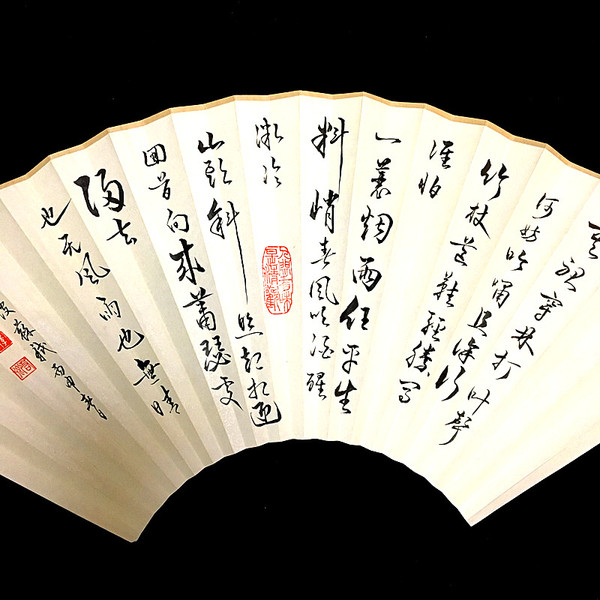 听穿林打叶聲
何妨吟啸且徐行
竹杖芒鞋輕勝马
谁怕
一蓑烟雨任平生
料峭春風吹酒醒
微冷
山头斜照却相迎
回首向来蕭瑟处
归去
也无風雨也無晴
蘇軾 丙申春月